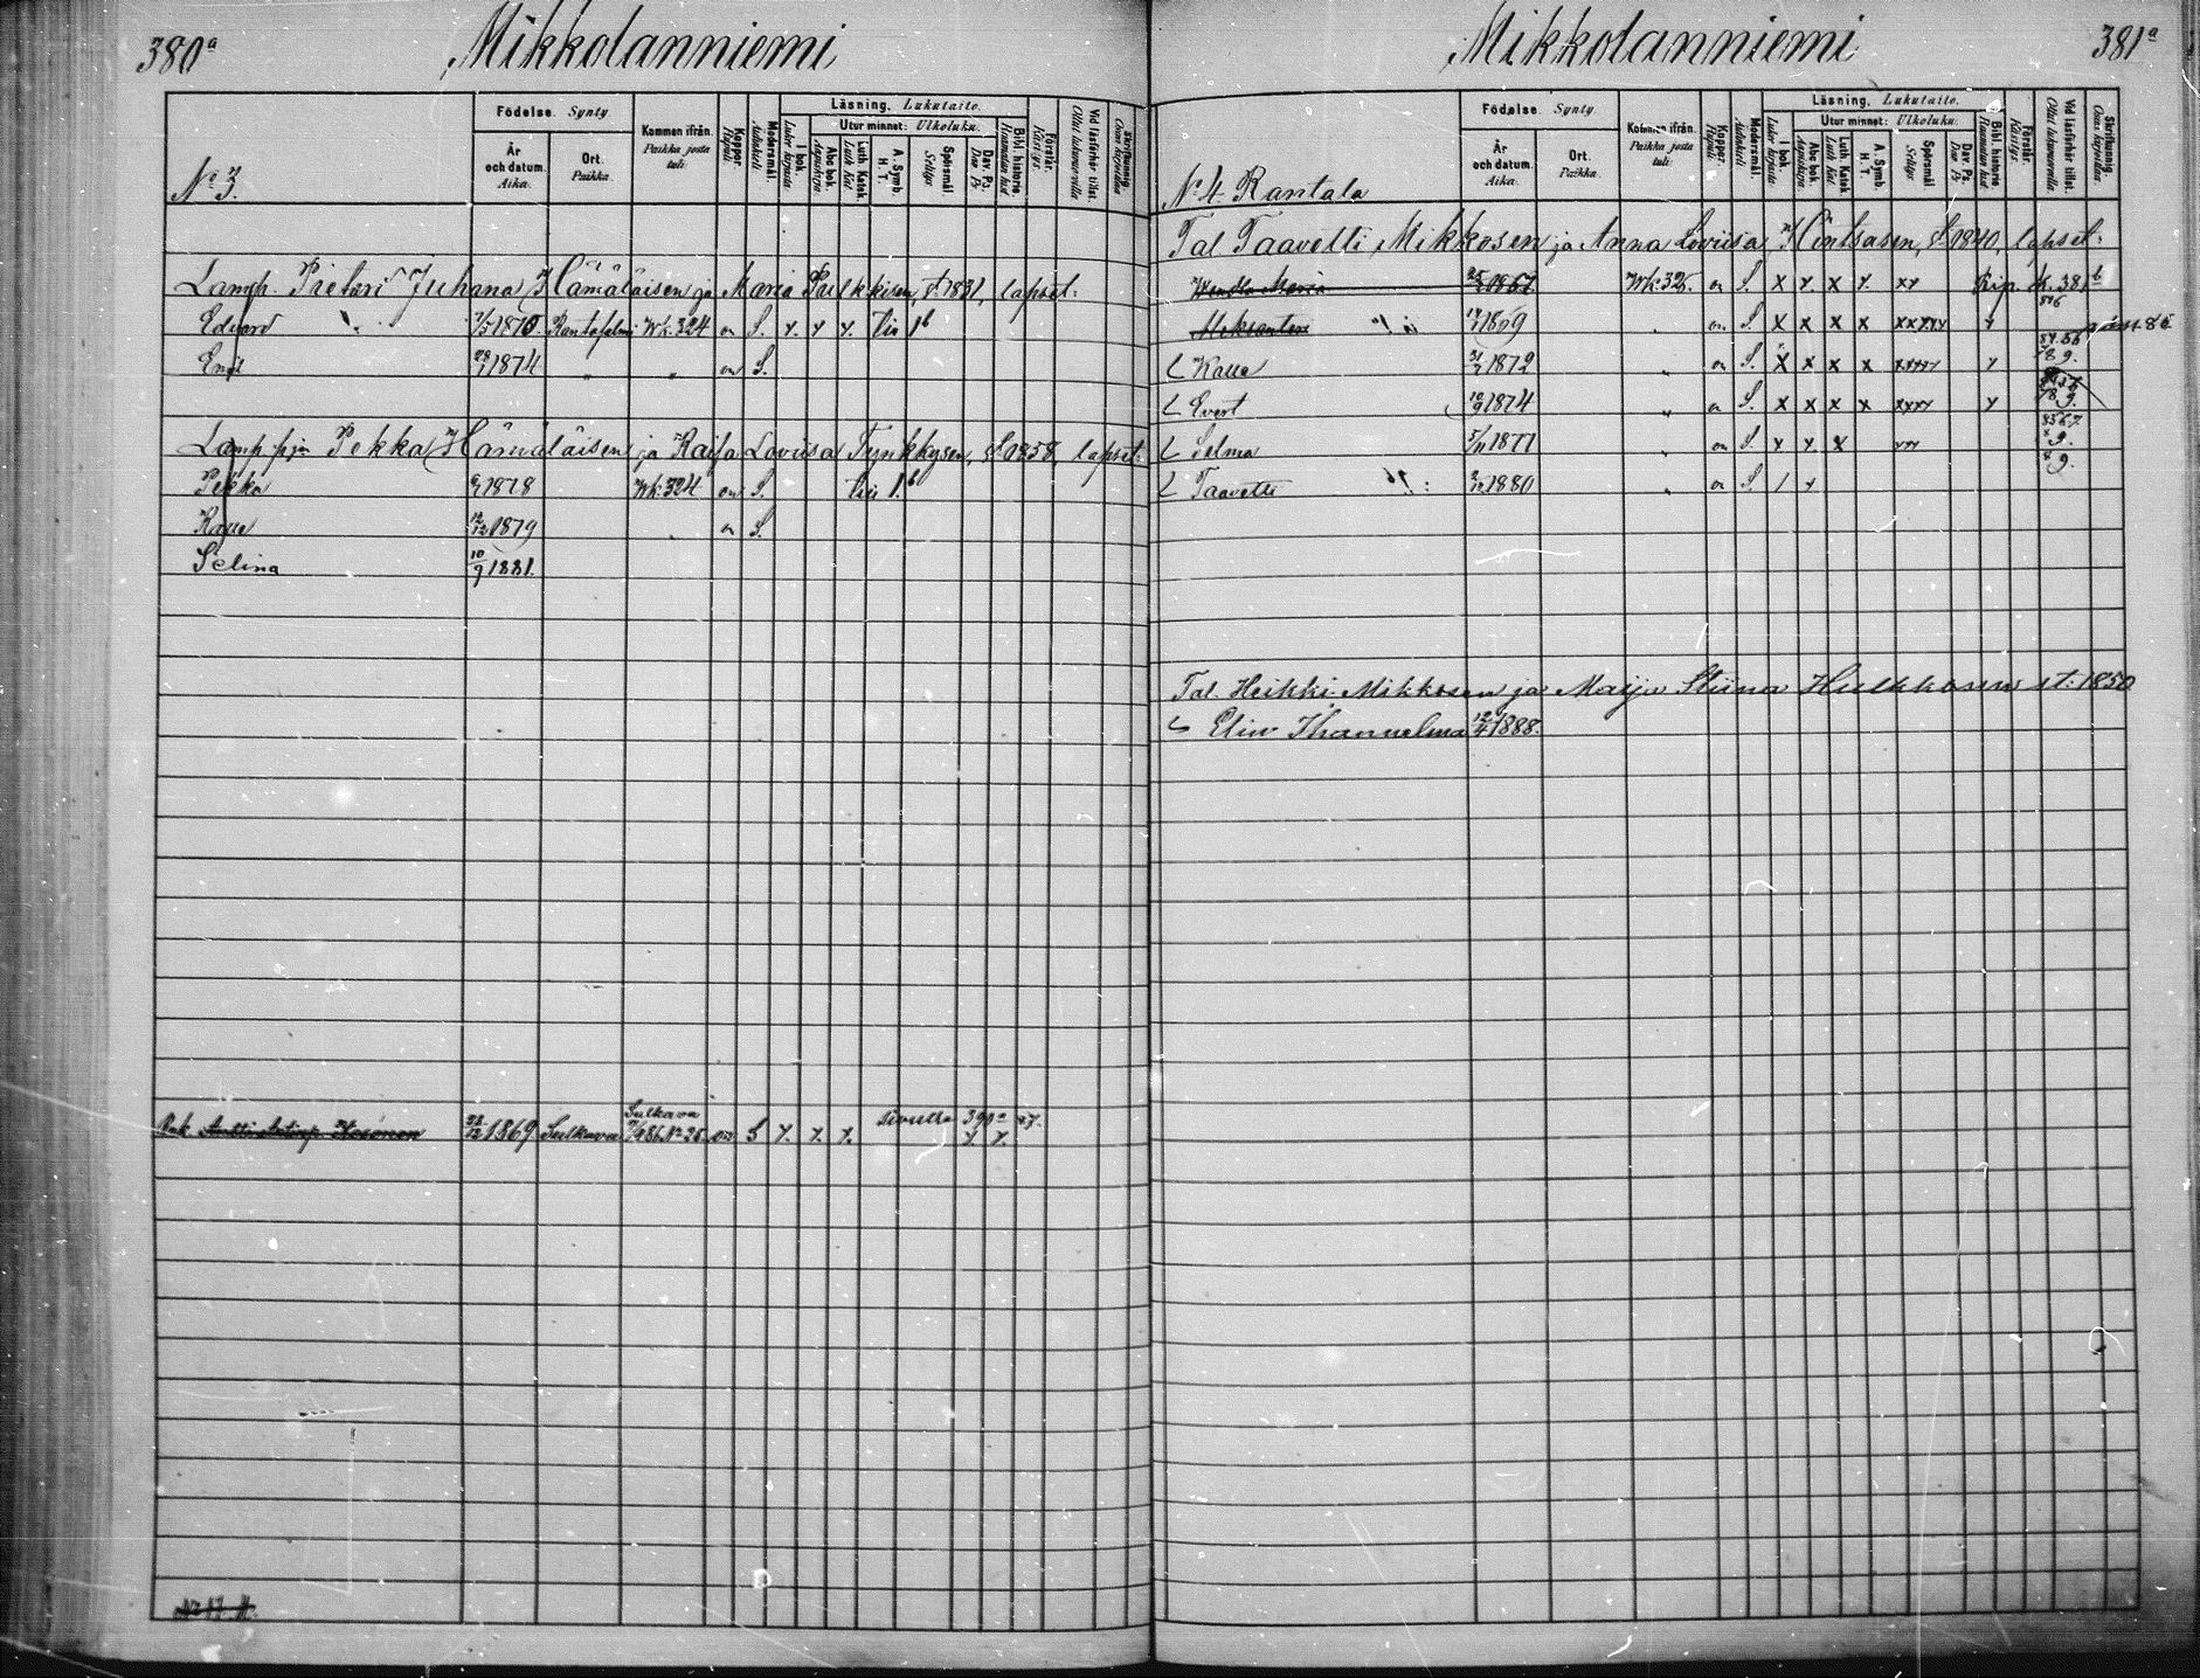 380a Mikkolanniemi
No 3.
Födelse. Synty
År och datum. Aika.
Ort. Paikka.
Kommen ifrån. Paikka josta tuli.
Koppor. Rupuli
Modersmål. Äidinkieli
Läsning. Lukutaito.
I bok. Lukee kirjasta.
Utur minnet: Ulkoluku.
Abc bok. Aapiskirja
Luth. Katek. Luth Kat
A. Symb. H. T.
Spörsmål. Selitys
Dav. Ps. Dav Ps
Bibl. historie Raamatun hist
Förstår. Käsitys.
Vid läsförhör tillst. Ollut lukuvuorolla
Skrifkunnig. Osaa kirjoittaa
Lamp. Pietari Juhana Hämäläisen ja Maria Pulkkisen, s. 1831, lapset.
Edvard 7/5 1870. Rantasalmi Wk. 324 on S. x. x x. Siv 1b
Emil 28/1 1874 " " on S.
Lamp. pja Pekka Hämäläisen ja Kaisa Loviisa Tynkkysen, s. 1858, lapset.
Pekka 1878 Wk. 324 on S.
Kalle 12/12 1879 on S.
Selina 10/9 1881.
Sulkava Sivulla 390a 87.
Renk. Antti Antinp. 1869 Sulkava No 26 on S x. x. x. x. x.
Mikkolanniemi 381a
No 4. Rantala
Födelse. Synty
År och datum. Aika.
Ort. Paikka.
Kommen ifrån. Paikka josta tuli.
Koppor. Rupuli
Modersmål. Äidinkieli
Läsning. Lukutaito.
I bok. Lukee kirjasta
Utur minnet: Ulkoluku.
Abc bok. Aapiskirja
Luth. Katek. Luth Kat
A. Symb. H. T.
Spörsmål Selitys
Dav. Ps. Dav Ps
Bibl. historie Raamatun hist
Förstår. Käsitys.
Vid läsförhör tillst. Ollut lukuvuorolla.
Skrifkunnig. Osaa kirjoittaa.
Tal. Taavetti Mikkosen ja Anna Loviisa Kintsasen, s. 1840, lapset.
Wendla Maria 1867 Wk. 325. on S. x x. x x. xx Rip. k. 381b
Aleksanter 1869 on S. x x x x xxxxx x
Kalle 31/7 1872 " on S. x x x x xxxxx x
Evert 10/9 1874 " on S. x x x x xxxx x
Selma 5/11 1877 " on S. x x. x xx
Taavetti 1880 " on S. / x
Tal. Heikki Mikkosen ja Maija Stiina Hulkkosen st. 1850
Elin 12/4 1888.